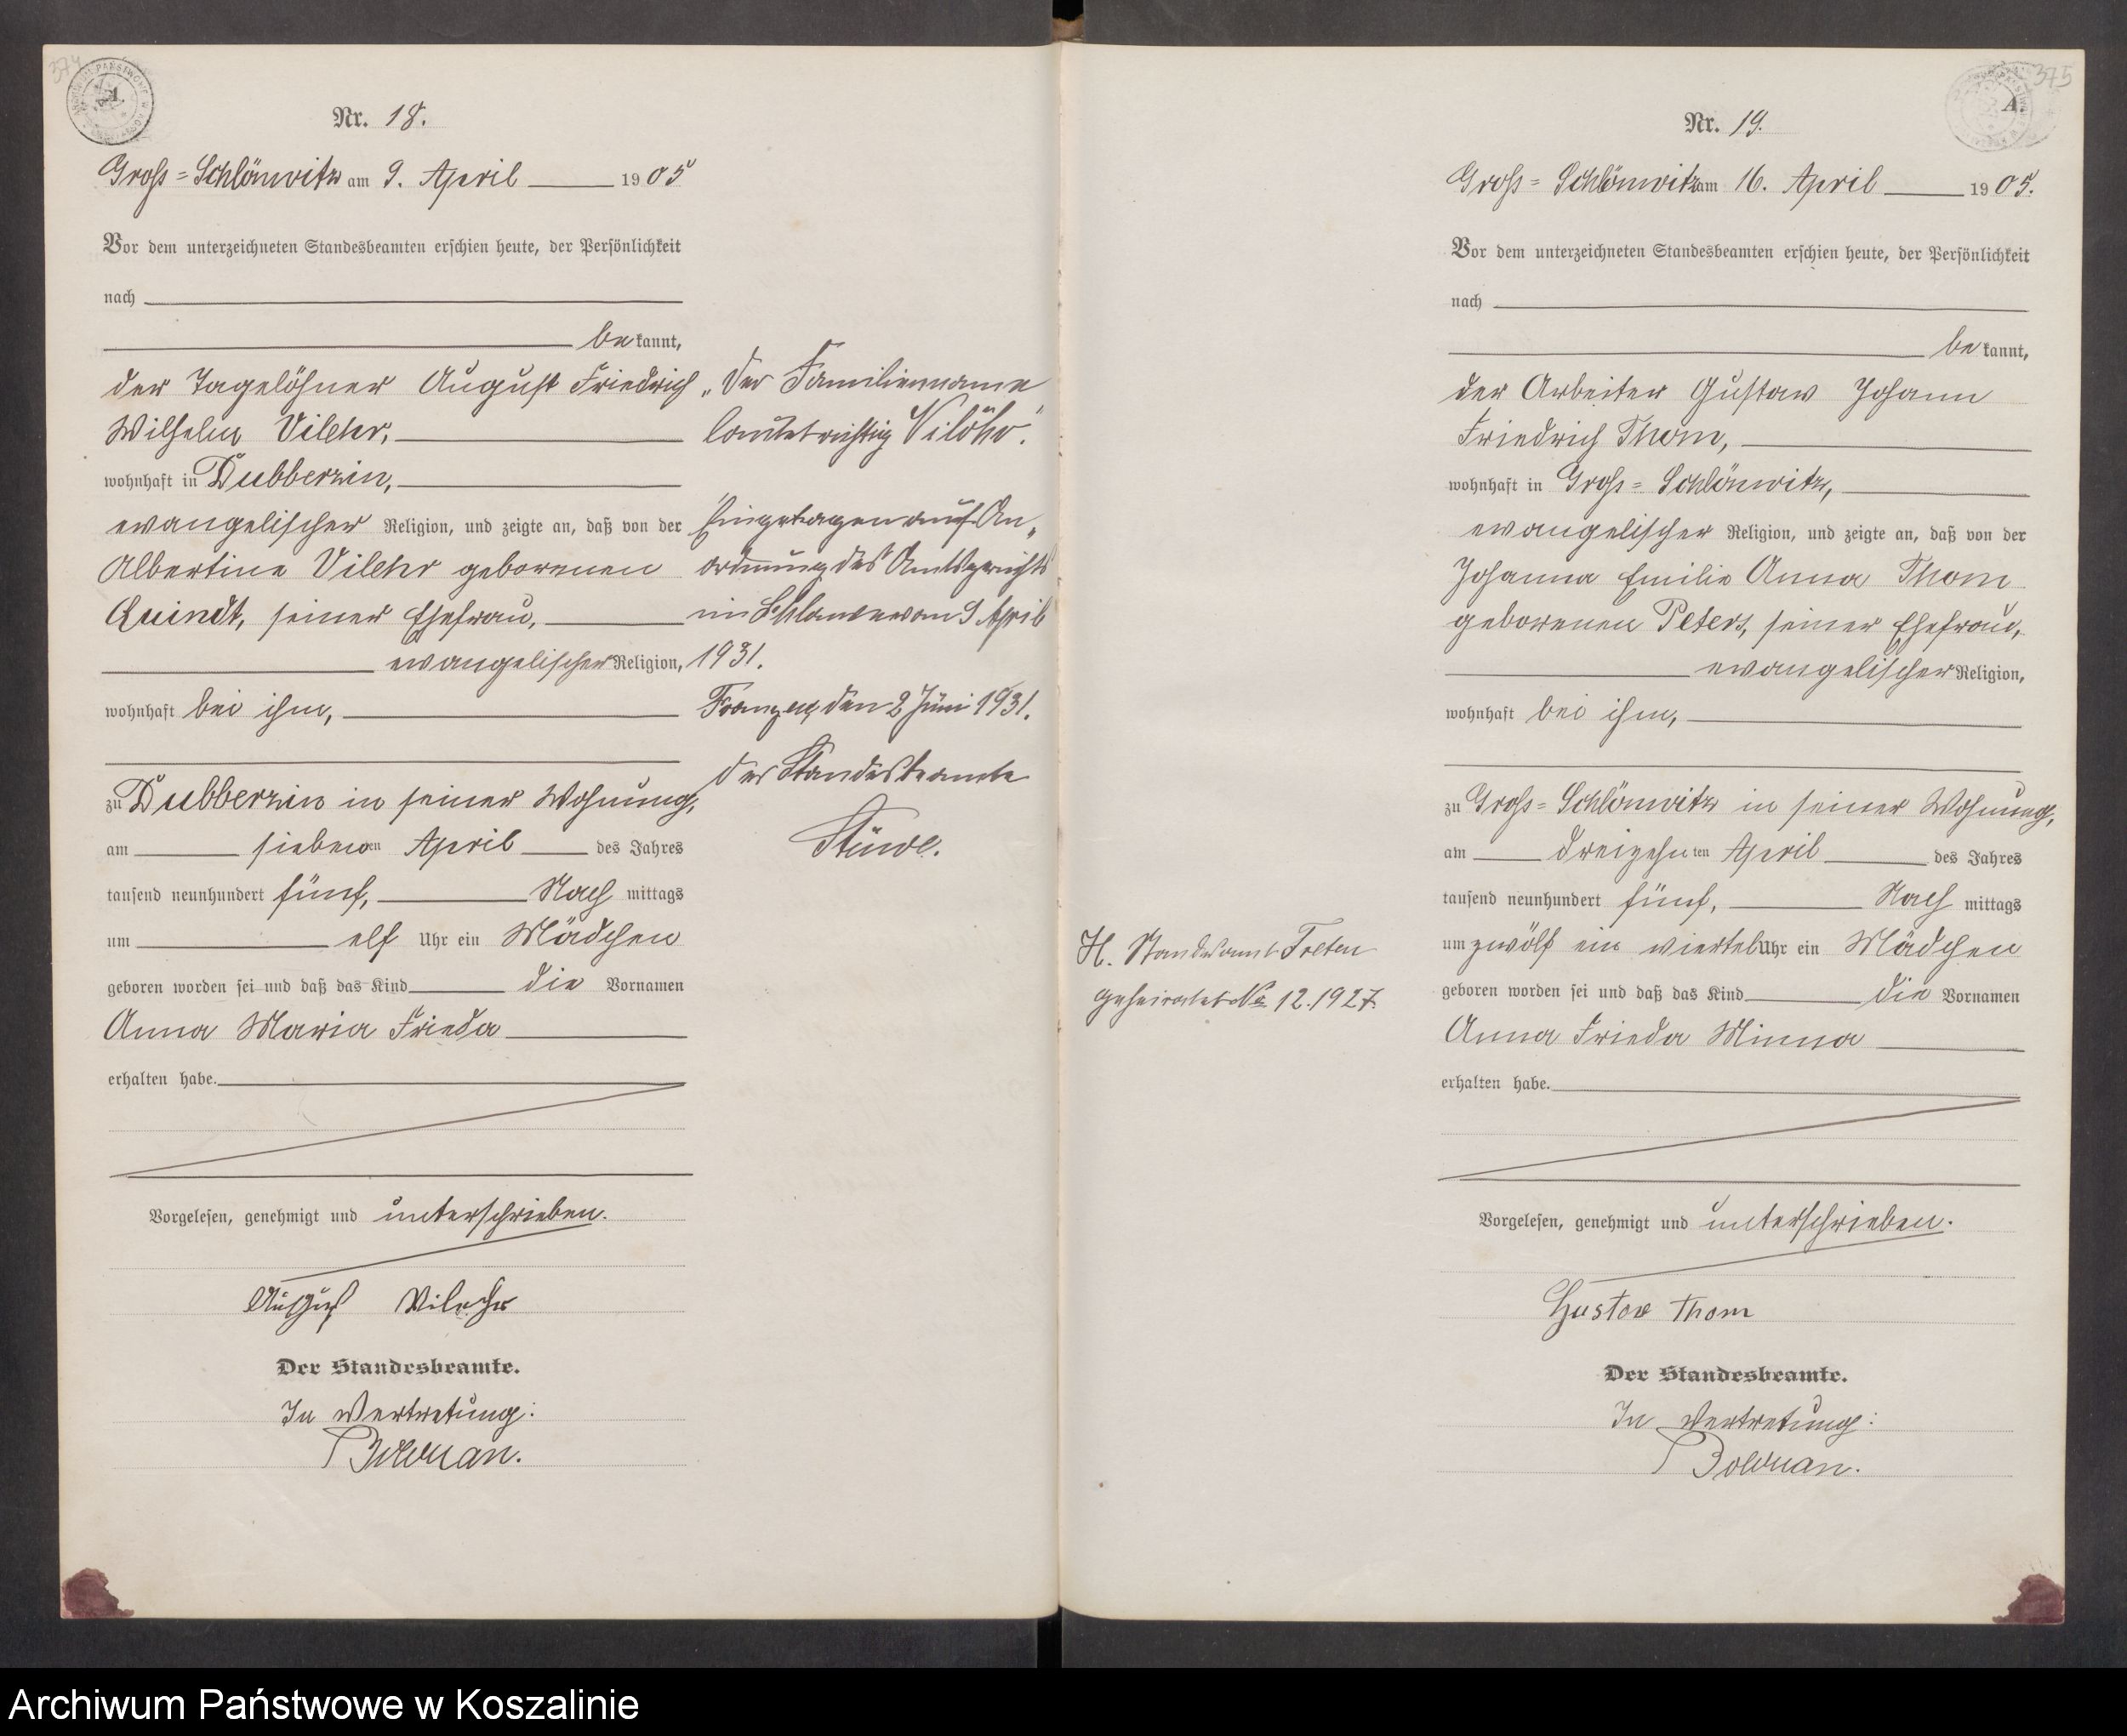 374
A.
Nr. 18.
Gross=Schlönwitz am 9. April 1905
Vor dem unterzeichneten Standesbeamten erschien heute, der Persönlichkeit
nach
bekannt,
der Tagelöhner August Friedrich
Wilhelm Vilehr,
wohnhaft in Dubberzin,
evangelischer Religion, und zeigte an, daß von der
Albertine Vilehr geborenen
Quindt, seiner Ehefrau,
evangelischer Religion,
wohnhaft bei ihm,
zu Dubberzin in seiner Wohnung,
am siebenten April des Jahres
tausend neunhundert fünf, Nachmittags
um elf Uhr ein Mädchen
geboren worden sei und daß das Kind die Vornamen
Anna Maria Frieda
erhalten habe.
Vorgelesen, genehmigt und unterschrieben.
August Vilehr
Der Standesbeamte.
In Vertretung:
Bolduan.
„Der Familienname
lautet richtig Vilöhr“.
Eingetragen auf An„
ordnung des Amtsgerichts
in Schlawe vom 9 April
1931.
Franzen, den 2 Juni 1931.
Der Standesbeamte
Stüwe.
375
A.
Nr. 19.
Gross=Schlönwitz am 16. April 1905.
Vor dem unterzeichneten Standesbeamten erschien heute, der Persönlichkeit
nach
bekannt,
der Arbeiter Gustav Johann
Friedrich Thom,
wohnhaft in Gross=Schlönwitz,
evangelischer Religion, und zeigte an, daß von der
Johanna Emilie Anna Thom
geborenen Peters, seiner Ehefrau,
evangelischer Religion,
wohnhaft bei ihm,
zu Gross=Schlönwitz in seiner Wohnung,
am dreizehnten April des Jahres
tausend neunhundert fünf, Nachmittags
um zwölf ein viertel Uhr ein Mädchen
geboren worden sei und daß das Kind die Vornamen
Anna Frieda Minna
erhalten habe.
Vorgelesen, genehmigt und unterschrieben.
Gustav Thom
Der Standesbeamte.
In Vertretung:
Bolduan.
H. Standesamt Treten
geheiratet No 12.1927.
Archiwum Państwowe w Koszalinie